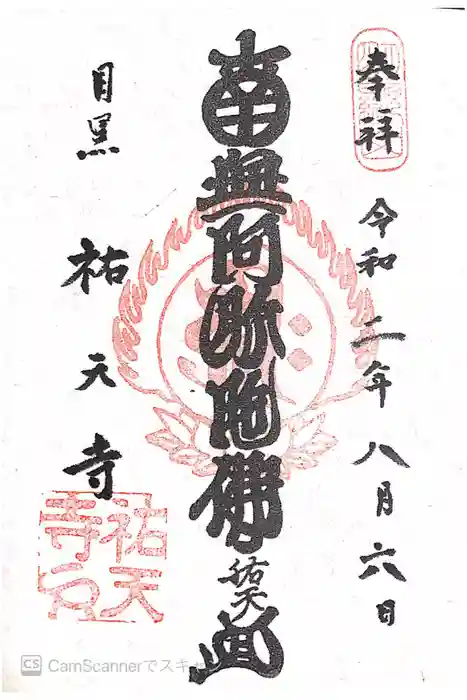 奉拝
令和二年八月六日
南無阿弥陀佛
祐天
目黒
祐天寺
祐天寺
CS CamScannerでスキャ